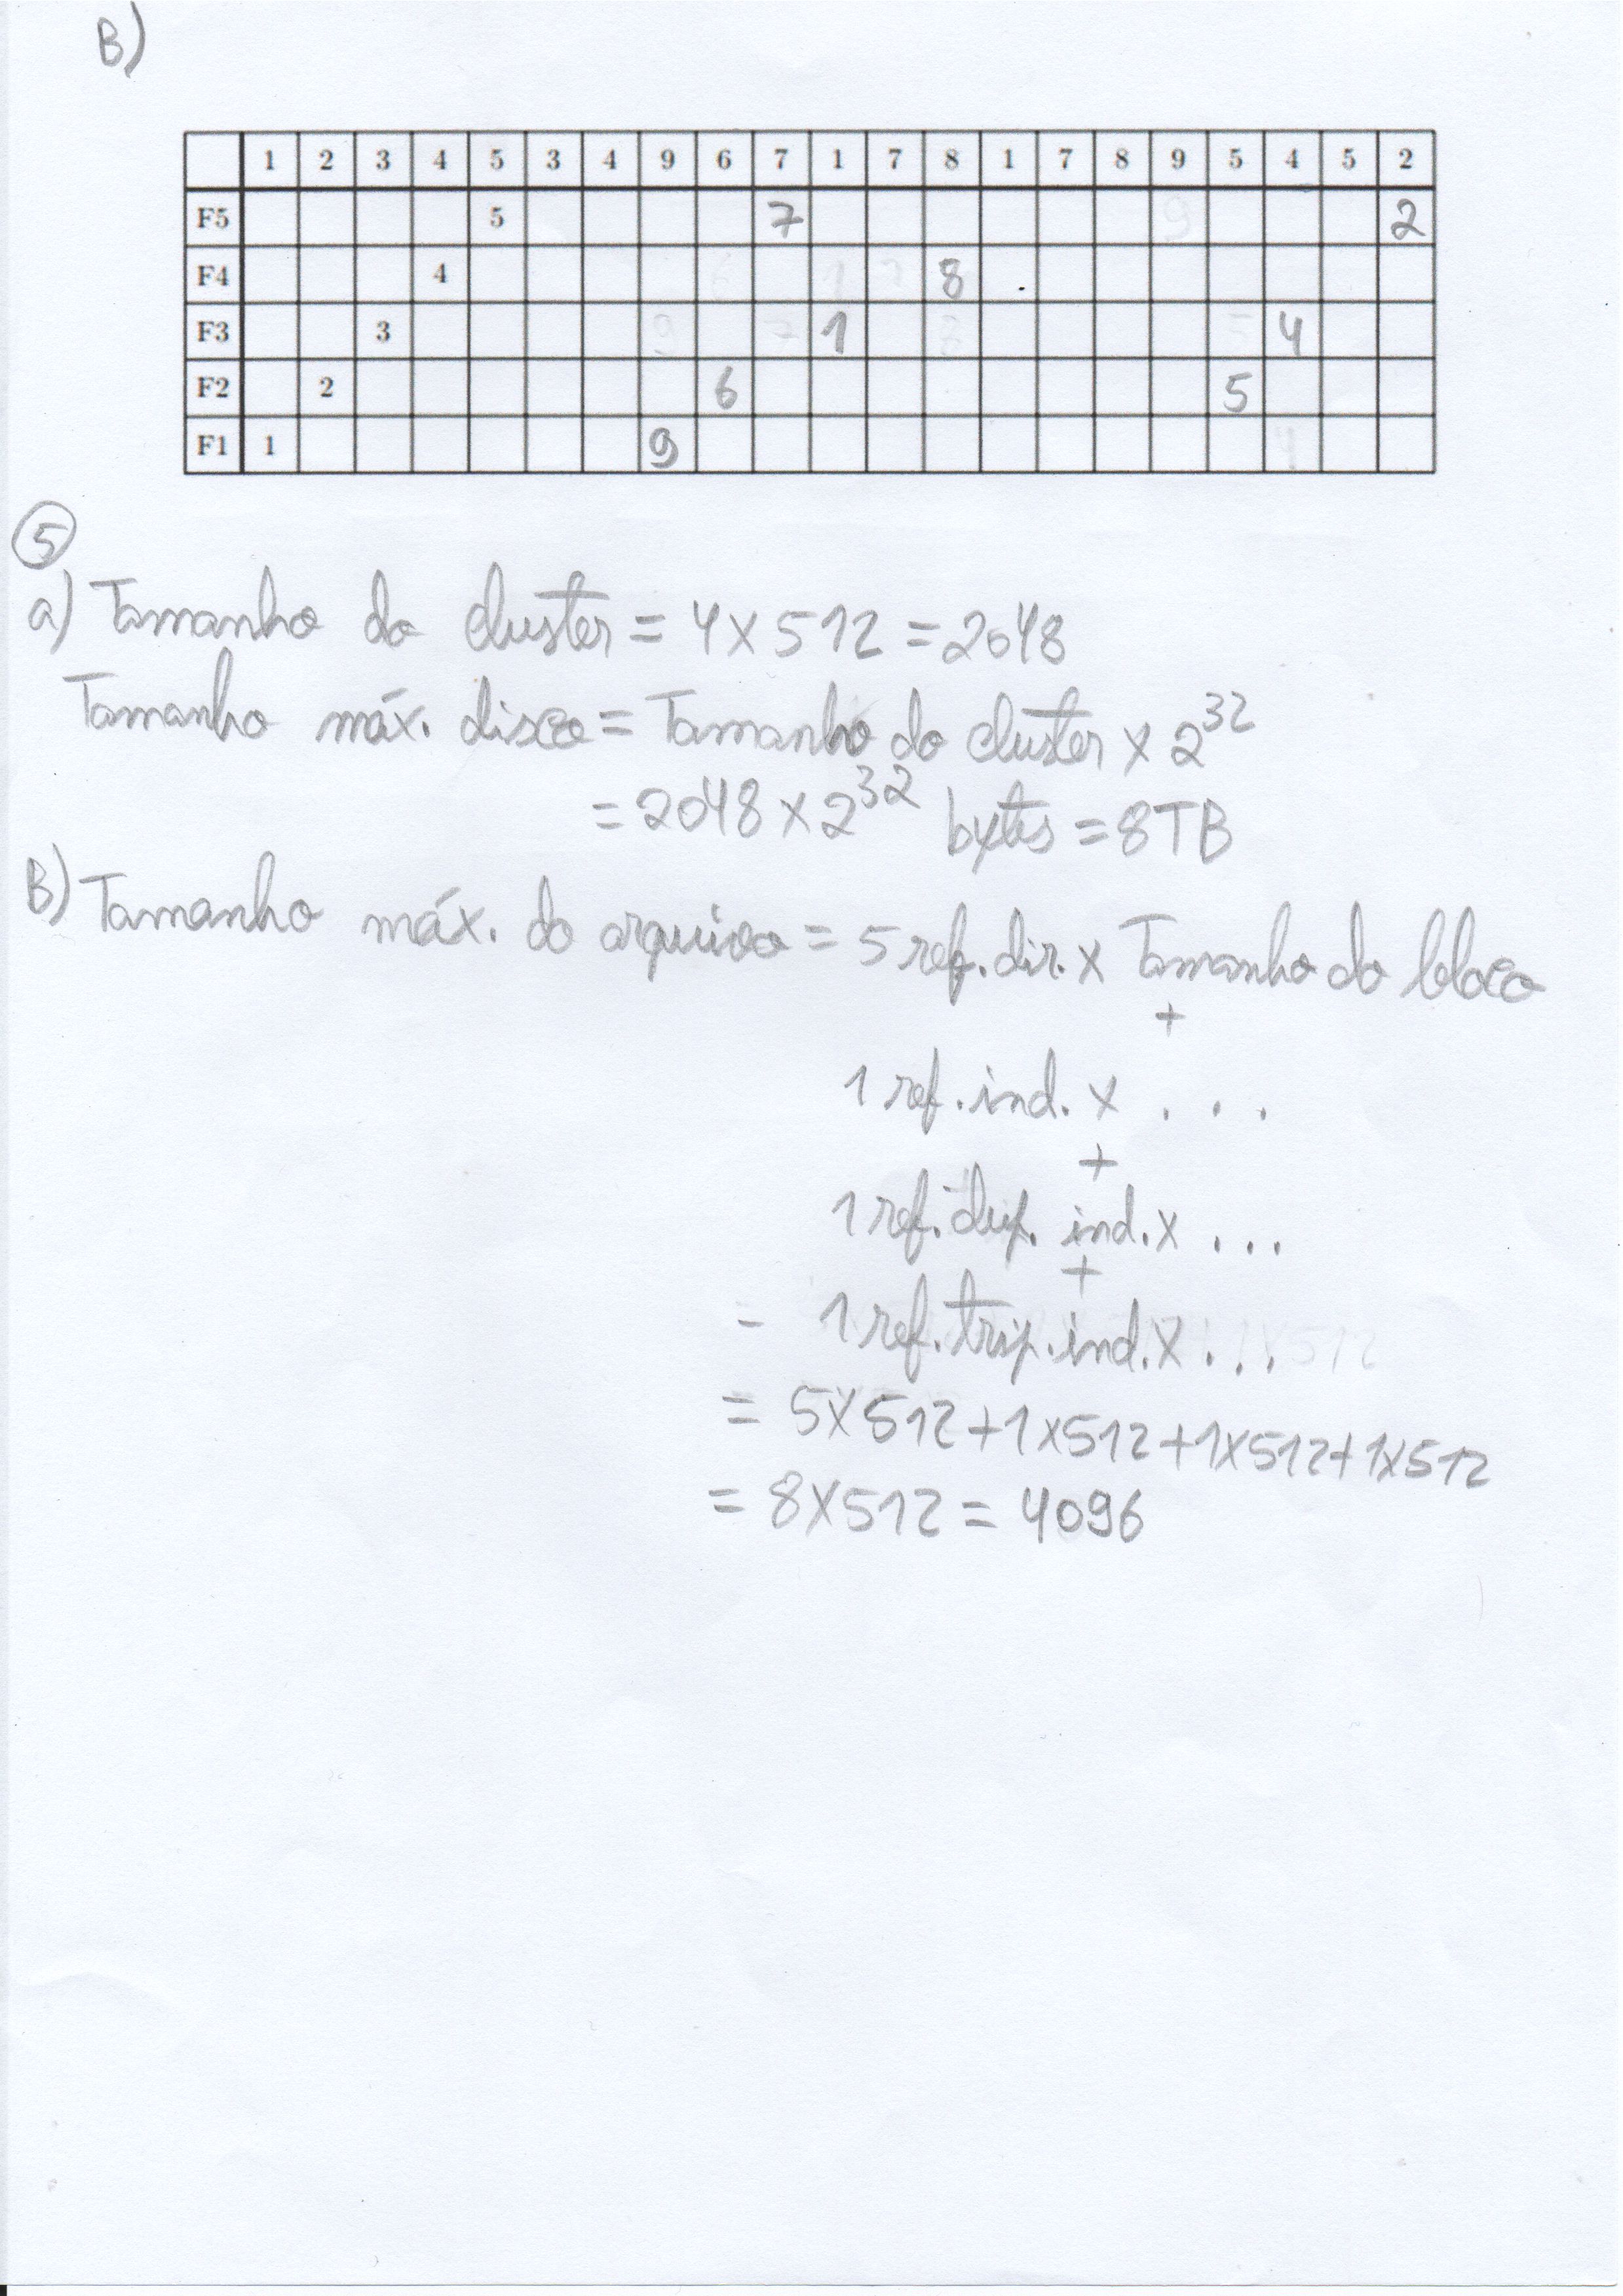 B)
1 2 3 4 5 3 4 9 6 7 1 7 8 1 7 8 9 5 4 5 2
F5 5 7 2
F4 4 8
F3 3 1 4
F2 2 6 5
F1 1 9
5
a) Tamanho do cluster = 4 X 512 = 2048
Tamanho máx. disco = Tamanho do cluster x 2^32
= 2048 x 2^32 bytes = 8TB
B) Tamanho máx. do arquivo = 5 ref. dir. x Tamanho do bloco
+
1 ref. ind. x . . .
+
1 ref. dup. ind. x . . .
+
= 1 ref. trip. ind. x . . .
= 5X512 + 1x512 + 1X512 + 1X512
= 8X512 = 4096